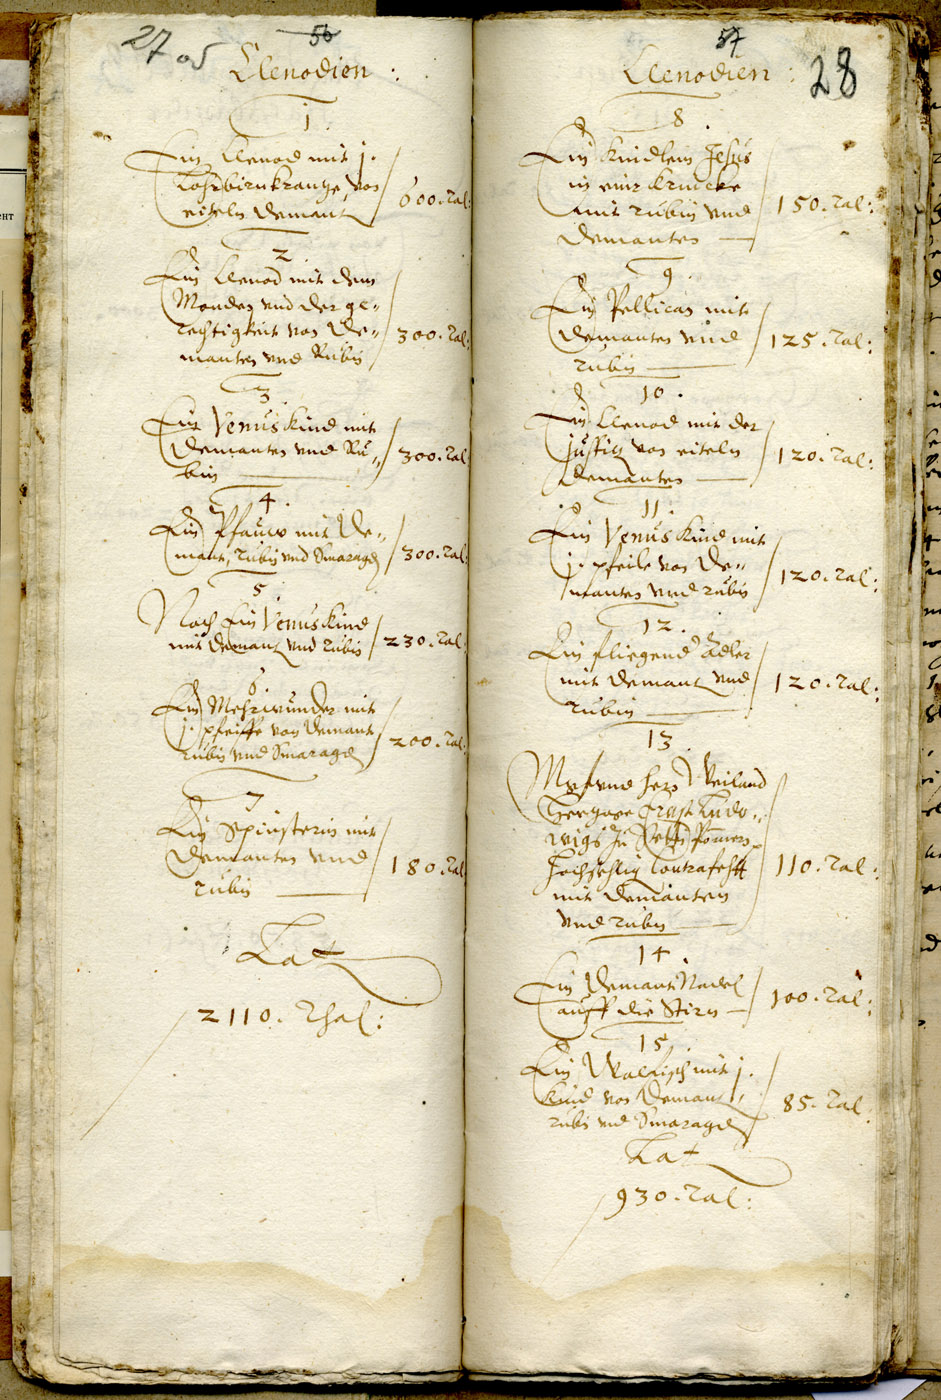 27 v
56
Clenodien :
1.
Ein Clenod mit j.
Lohrbirnkrantze, von
eiteln Demant
600. Tal:
2.
Ein Clenod mit dem
Monden vnd der ge-
rechtigkeit von De-
manten vnd Rubin
300. Tal:
3.
Ein Venus kind mit
Demanten vnd Ru-
bin
300. Tal
4.
Ein Pfauw mit De-
mant, rubin vnd Smaragd
300. Tal:
5.
Noch Ein Venus kind
mit Demant vnd rubin
230. Tal:
6.
Ein Mehrwunder mit
j. pfeiffe von Demant
rubin vnd Smaragd
200. Tal:
7.
Ein Spinsterin mit
Demanten vnd
rubin
180. Tal
Lat
2110. Thal:
57
28
Clenodien :
8.
Ein Kindlein Jesus
in einer Kruicke
mit rubin vnd
Demanten
150. Tal:
9.
Ein Pellican mit
Demanten vnd
rubin
125. Tal:
10.
Ein Clenod mit der
Justitz von eiteln
Demanten
120. Tal:
11.
Ein Venus kind mit
j. pfeile von De-
manten vnd rubin
120. Tal:
12.
Ein fliegend Adler
mit Demant vnd
rubin
120. Tal:
13.
Weiland
Ernst Ludo-
wigs zu Stettin Pommern
Hochsehlig Contrafehtt
mit Demanten
vnd rubin
110. Tal:
14.
Ein Demant Nadel
auff die Stirn
100. Tal:
15.
Ein Walfisch mit j.
Kind von Demant,
rubin vnd Smaragd
85. Tal:
Lat
930. Tal: